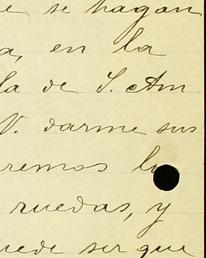 e se hagan
a, en la
la de S. Am
V. darme sus
remos
ruedas, y
uede ser que